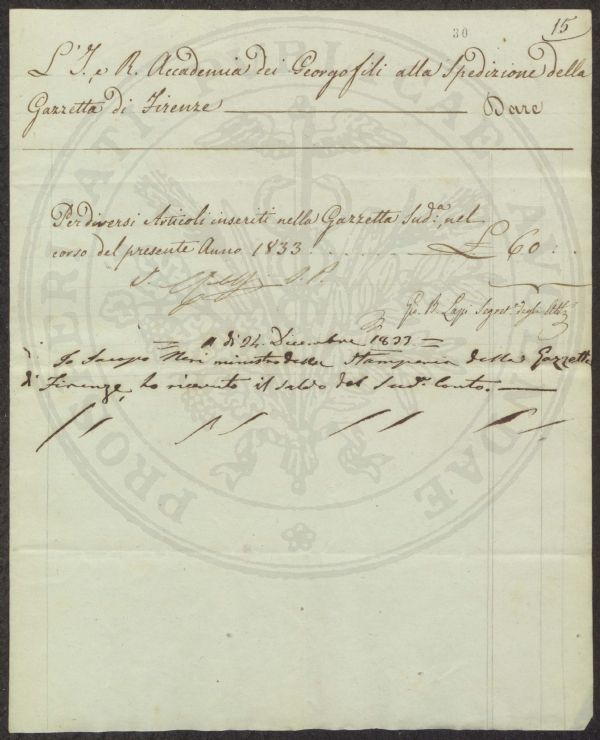 30
15
L'I. e R. Accademia dei Georgofili alla Spedizione della
Gazzetta di Firenze Dare
Per diversi Articoli inseriti nella Gazzetta Sudª, nel
corso del presente Anno 1833 . . . . . . . £ 60 : .
G. B. Lapi Segretº degli Atti
= A di 24. Dicembre 1833 =
Io Jacopo Neri ministro della Stamperia della Gazzetta
di Firenze, ho ricevuto il saldo del Sudº Conto.
PROSPERITATI PUBLICAE AUGENDAE